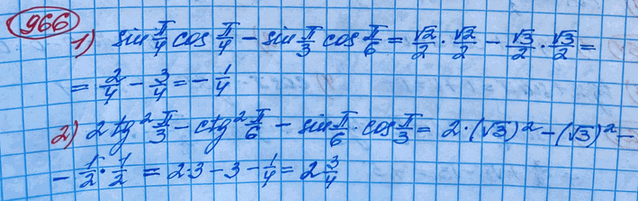 966
1) sin π/4 cos π/4 - sin π/3 cos π/6 = √2/2 · √2/2 - √3/2 · √3/2 =
= 2/4 - 3/4 = - 1/4
2) 2 tg² π/3 - ctg² π/6 - sin π/6 · cos π/3 = 2·(√3)² - (√3)² -
- 1/2 · 1/2 = 2·3 - 3 - 1/4 = 2 3/4